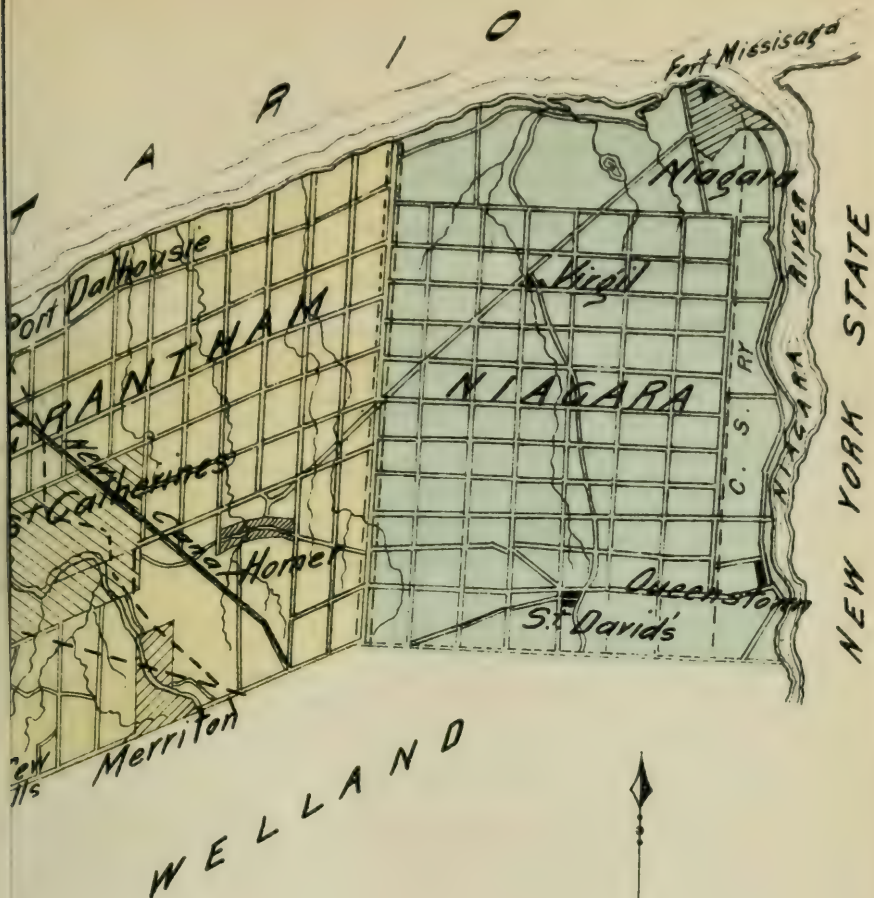 TARIO
Fort Missisaga
Niagara
Port Dalhousie
Virgil
RANTHAM
NIAGARA
C. S. RY
NIAGARA RIVER
NEW YORK STATE
St Catherines
New Canal
Homer
Queenstown
St David's
Merriton
WELLAND